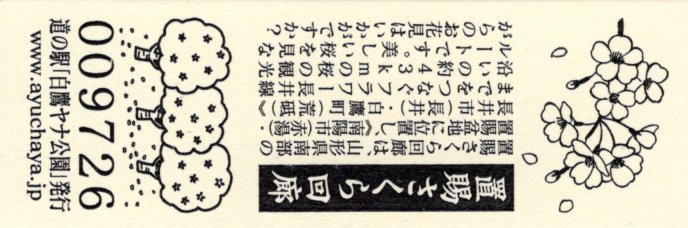 置賜さくら回廊
置賜さくら回廊は、山形県南部の
置賜盆地に位置し《南陽市(赤湯)・
長井市(長井)・白鷹町(荒砥)》
までをつなぐフラワー長井線
沿いの約43kmの桜の観光
ルートです。美しい桜を見な
がらのお花見はいかがですか？
009726
道の駅「白鷹ヤナ公園」発行
www.ayuchaya.jp